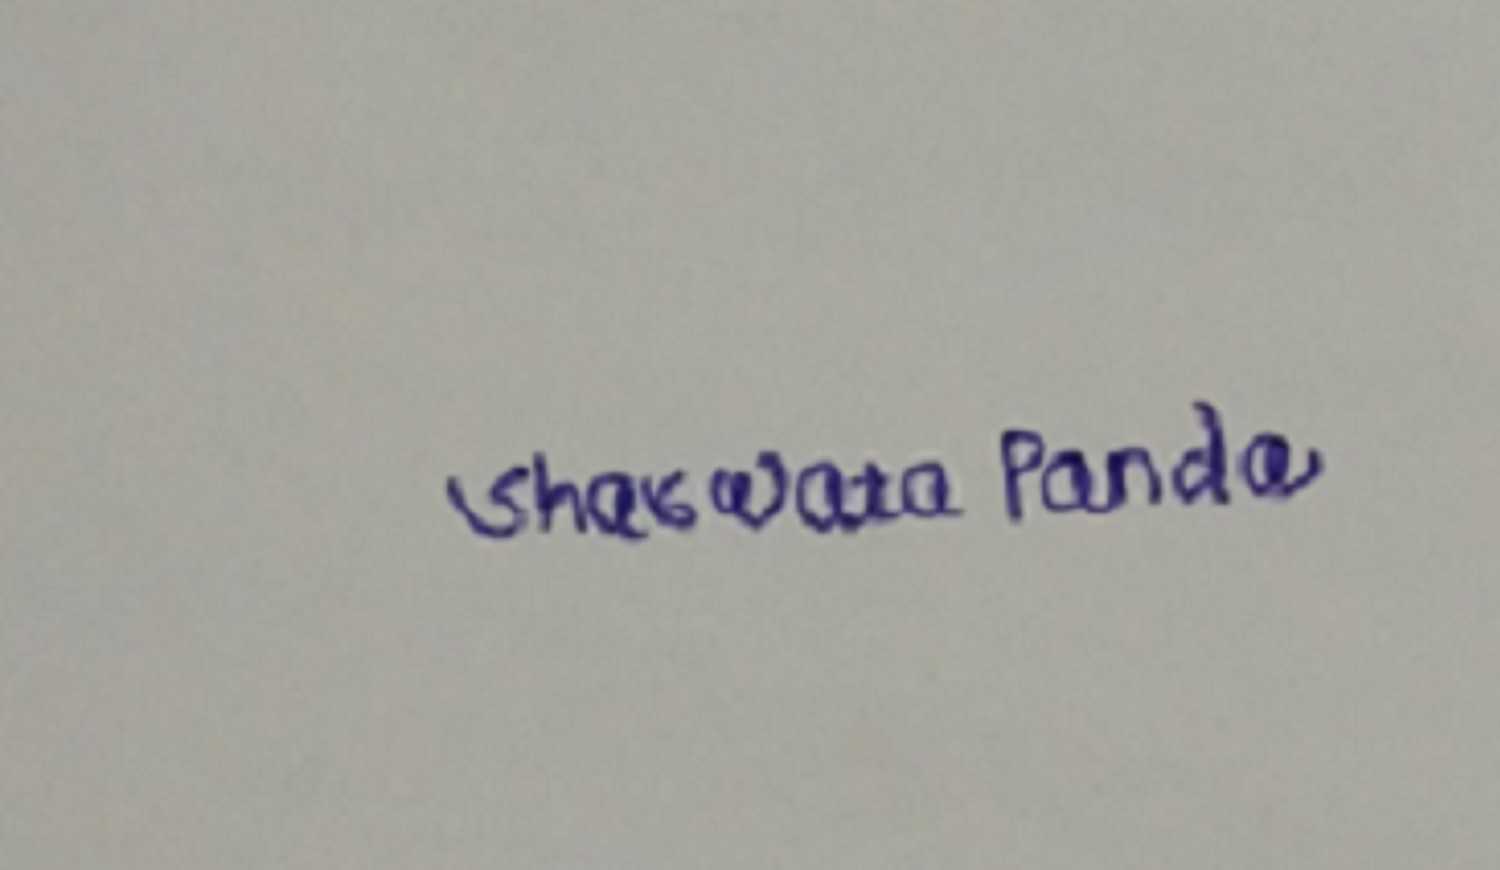 Shaswata Panda